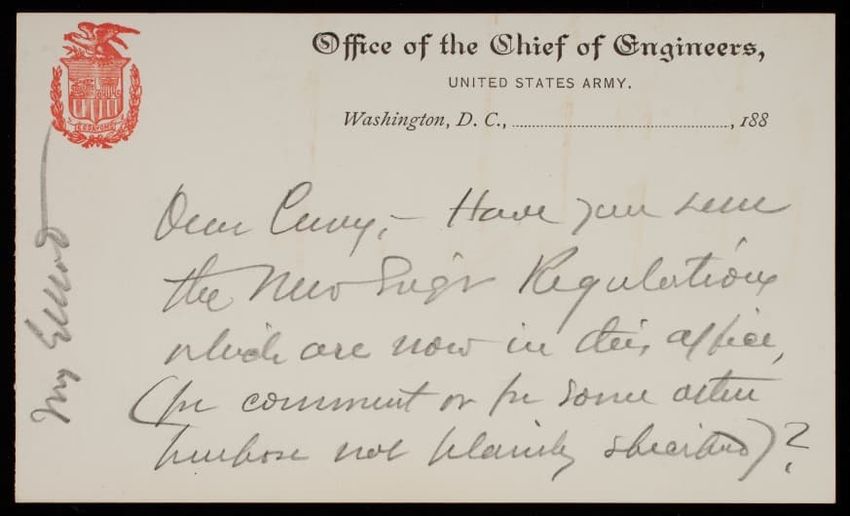 Office of the Chief of Engineers,
UNITED STATES ARMY.
Washington, D. C., ........................................, 188
Dear Casey,– Have you seen
the New Eng'r Regulations
which are now in this office,
(for comment or for some other
purpose not plainly specified)?